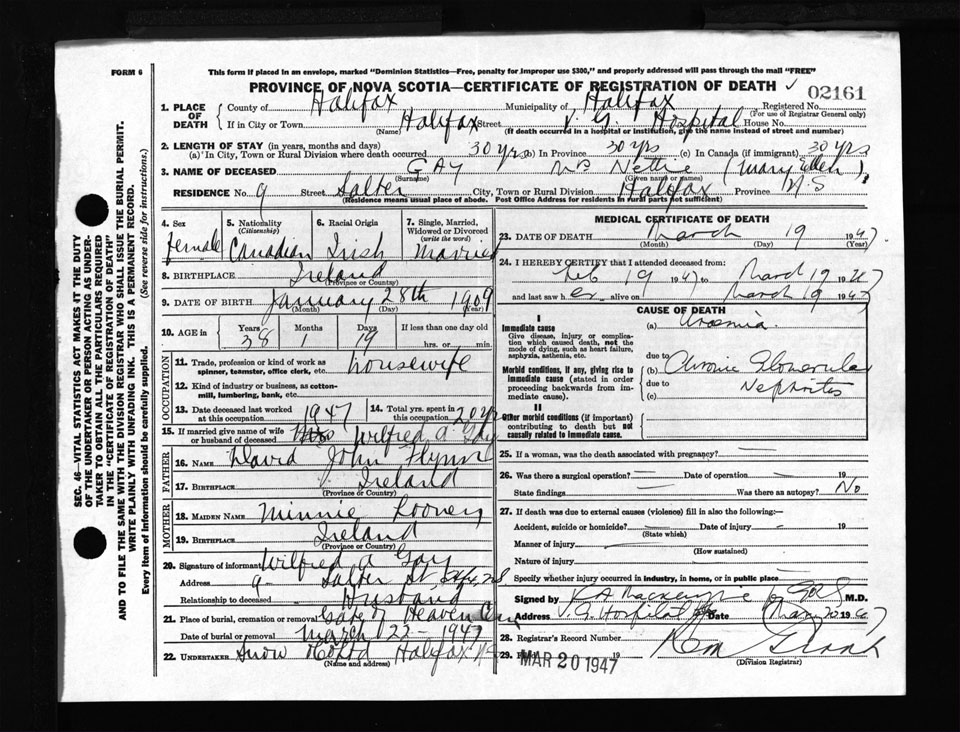 FORM 6
This form if placed in an envelope, marked "Dominion Statistics—Free, penalty for improper use $300," and properly addressed will pass through the mail "FREE"
PROVINCE OF NOVA SCOTIA—CERTIFICATE OF REGISTRATION OF DEATH
02161
1. PLACE OF DEATH
County of Halifax Municipality of Halifax Registered No.
(For use of Registrar General only)
If in City or Town Halifax Street V. G. Hospital House No.
(Name) (If death occurred in a hospital or institution, give the name instead of street and number)
2. LENGTH OF STAY (in years, months and days)
(a) In City, Town or Rural Division where death occurred 30 yrs (b) In Province 30 yrs (c) In Canada (if immigrant) 30 yrs
3. NAME OF DECEASED GAY Mrs Nettie (Mary Ellen)
(Surname) (Given name or names)
RESIDENCE No. 9 Street Salter City, Town or Rural Division Halifax Province N.S
(Residence means usual place of abode. Post Office Address for residents in rural parts not sufficient)
4. Sex female
5. Nationality (Citizenship) Canadian
6. Racial Origin Irish
7. Single, Married, Widowed or Divorced (write the word) Married
8. BIRTHPLACE Ireland
(Province or Country)
9. DATE OF BIRTH January 28th 1909
(Month) (Day) (Year)
10. AGE in Years 38 Months 1 Days 19 If less than one day old hrs. or min.
OCCUPATION
11. Trade, profession or kind of work as spinner, teamster, office clerk, etc. housewife
12. Kind of industry or business, as cotton-mill, lumbering, bank, etc.
13. Date deceased last worked at this occupation 1947
14. Total yrs. spent in this occupation 20 yr
15. If married give name of wife or husband of deceased Wilfred A Gay
FATHER
16. NAME David John Flynn
17. BIRTHPLACE Ireland
(Province or Country)
MOTHER
18. MAIDEN NAME Minnie Rooney
19. BIRTHPLACE Ireland
(Province or Country)
20. Signature of informant Wilfred A Gay
Address 9 - Salter St Hfx. N.S
Relationship to deceased Husband
21. Place of burial, cremation or removal Gate of Heaven Cem
Date of burial or removal March 22 - 1947
22. UNDERTAKER Snow & Co Ltd Halifax N.S
(Name and address)
MEDICAL CERTIFICATE OF DEATH
23. DATE OF DEATH March 19 1947
(Month) (Day) (Year)
24. I HEREBY CERTIFY that I attended deceased from:
Feb 19 1947 to March 19 1947
and last saw her alive on March 19 1947
CAUSE OF DEATH
I
Immediate cause
Give disease, injury or complication which caused death, not the mode of dying, such as heart failure, asphyxia, asthenia, etc.
(a) Uraemia
due to
Morbid conditions, if any, giving rise to immediate cause (stated in order proceeding backwards from immediate cause).
(b) Chronic Glomerular
due to
(c) Nephritis
II
Other morbid conditions (if important) contributing to death but not causally related to immediate cause.
25. If a woman, was the death associated with pregnancy?
26. Was there a surgical operation? Date of operation 19
State findings Was there an autopsy? No
27. If death was due to external causes (violence) fill in also the following:—
Accident, suicide or homicide? Date of injury 19
(State which)
Manner of injury
(How sustained)
Nature of injury
Specify whether injury occurred in industry, in home, or in public place
Signed by M.D.
Address V. G. Hospital Date Mar 20 1947
28. Registrar's Record Number
29. MAR 20 1947 19
(Division Registrar)
SEC. 46—VITAL STATISTICS ACT MAKES IT THE DUTY
OF THE UNDERTAKER OR PERSON ACTING AS UNDERTAKER TO OBTAIN ALL THE PARTICULARS REQUIRED
IN THE "CERTIFICATE OF REGISTRATION OF DEATH"
AND TO FILE THE SAME WITH THE DIVISION REGISTRAR WHO SHALL ISSUE THE BURIAL PERMIT.
WRITE PLAINLY WITH UNFADING INK. THIS IS A PERMANENT RECORD.
Every item of information should be carefully supplied. (See reverse side for instructions.)